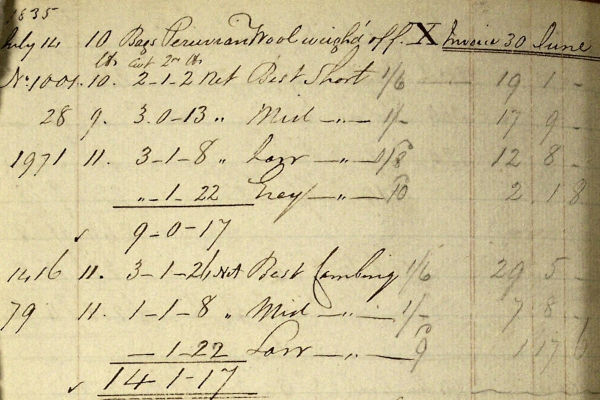 1835
July 14 10 Bags Peruvian Wool weigh'd off. X Invoice 30 June
lbs Cwt qrs lbs
No. 1001. 10. 2-1-2 Net Best Short 1/6 19 1 -
28 9. 3.0-13 „ Mid -„- 1/- 17 9 -
1971 11. 3-1-8 „ Low -„- /8 12 8 -
„-1-22 Grey -„- 2 1 8
9-0-17
1416 11. 3-1-21 Net Best Combing 1/6 29 5 -
79 11. 1-1-8 „ Mid -„- 1/- 7 8 -
-1-22 Low -„- 9 1 17 6
14 1-17